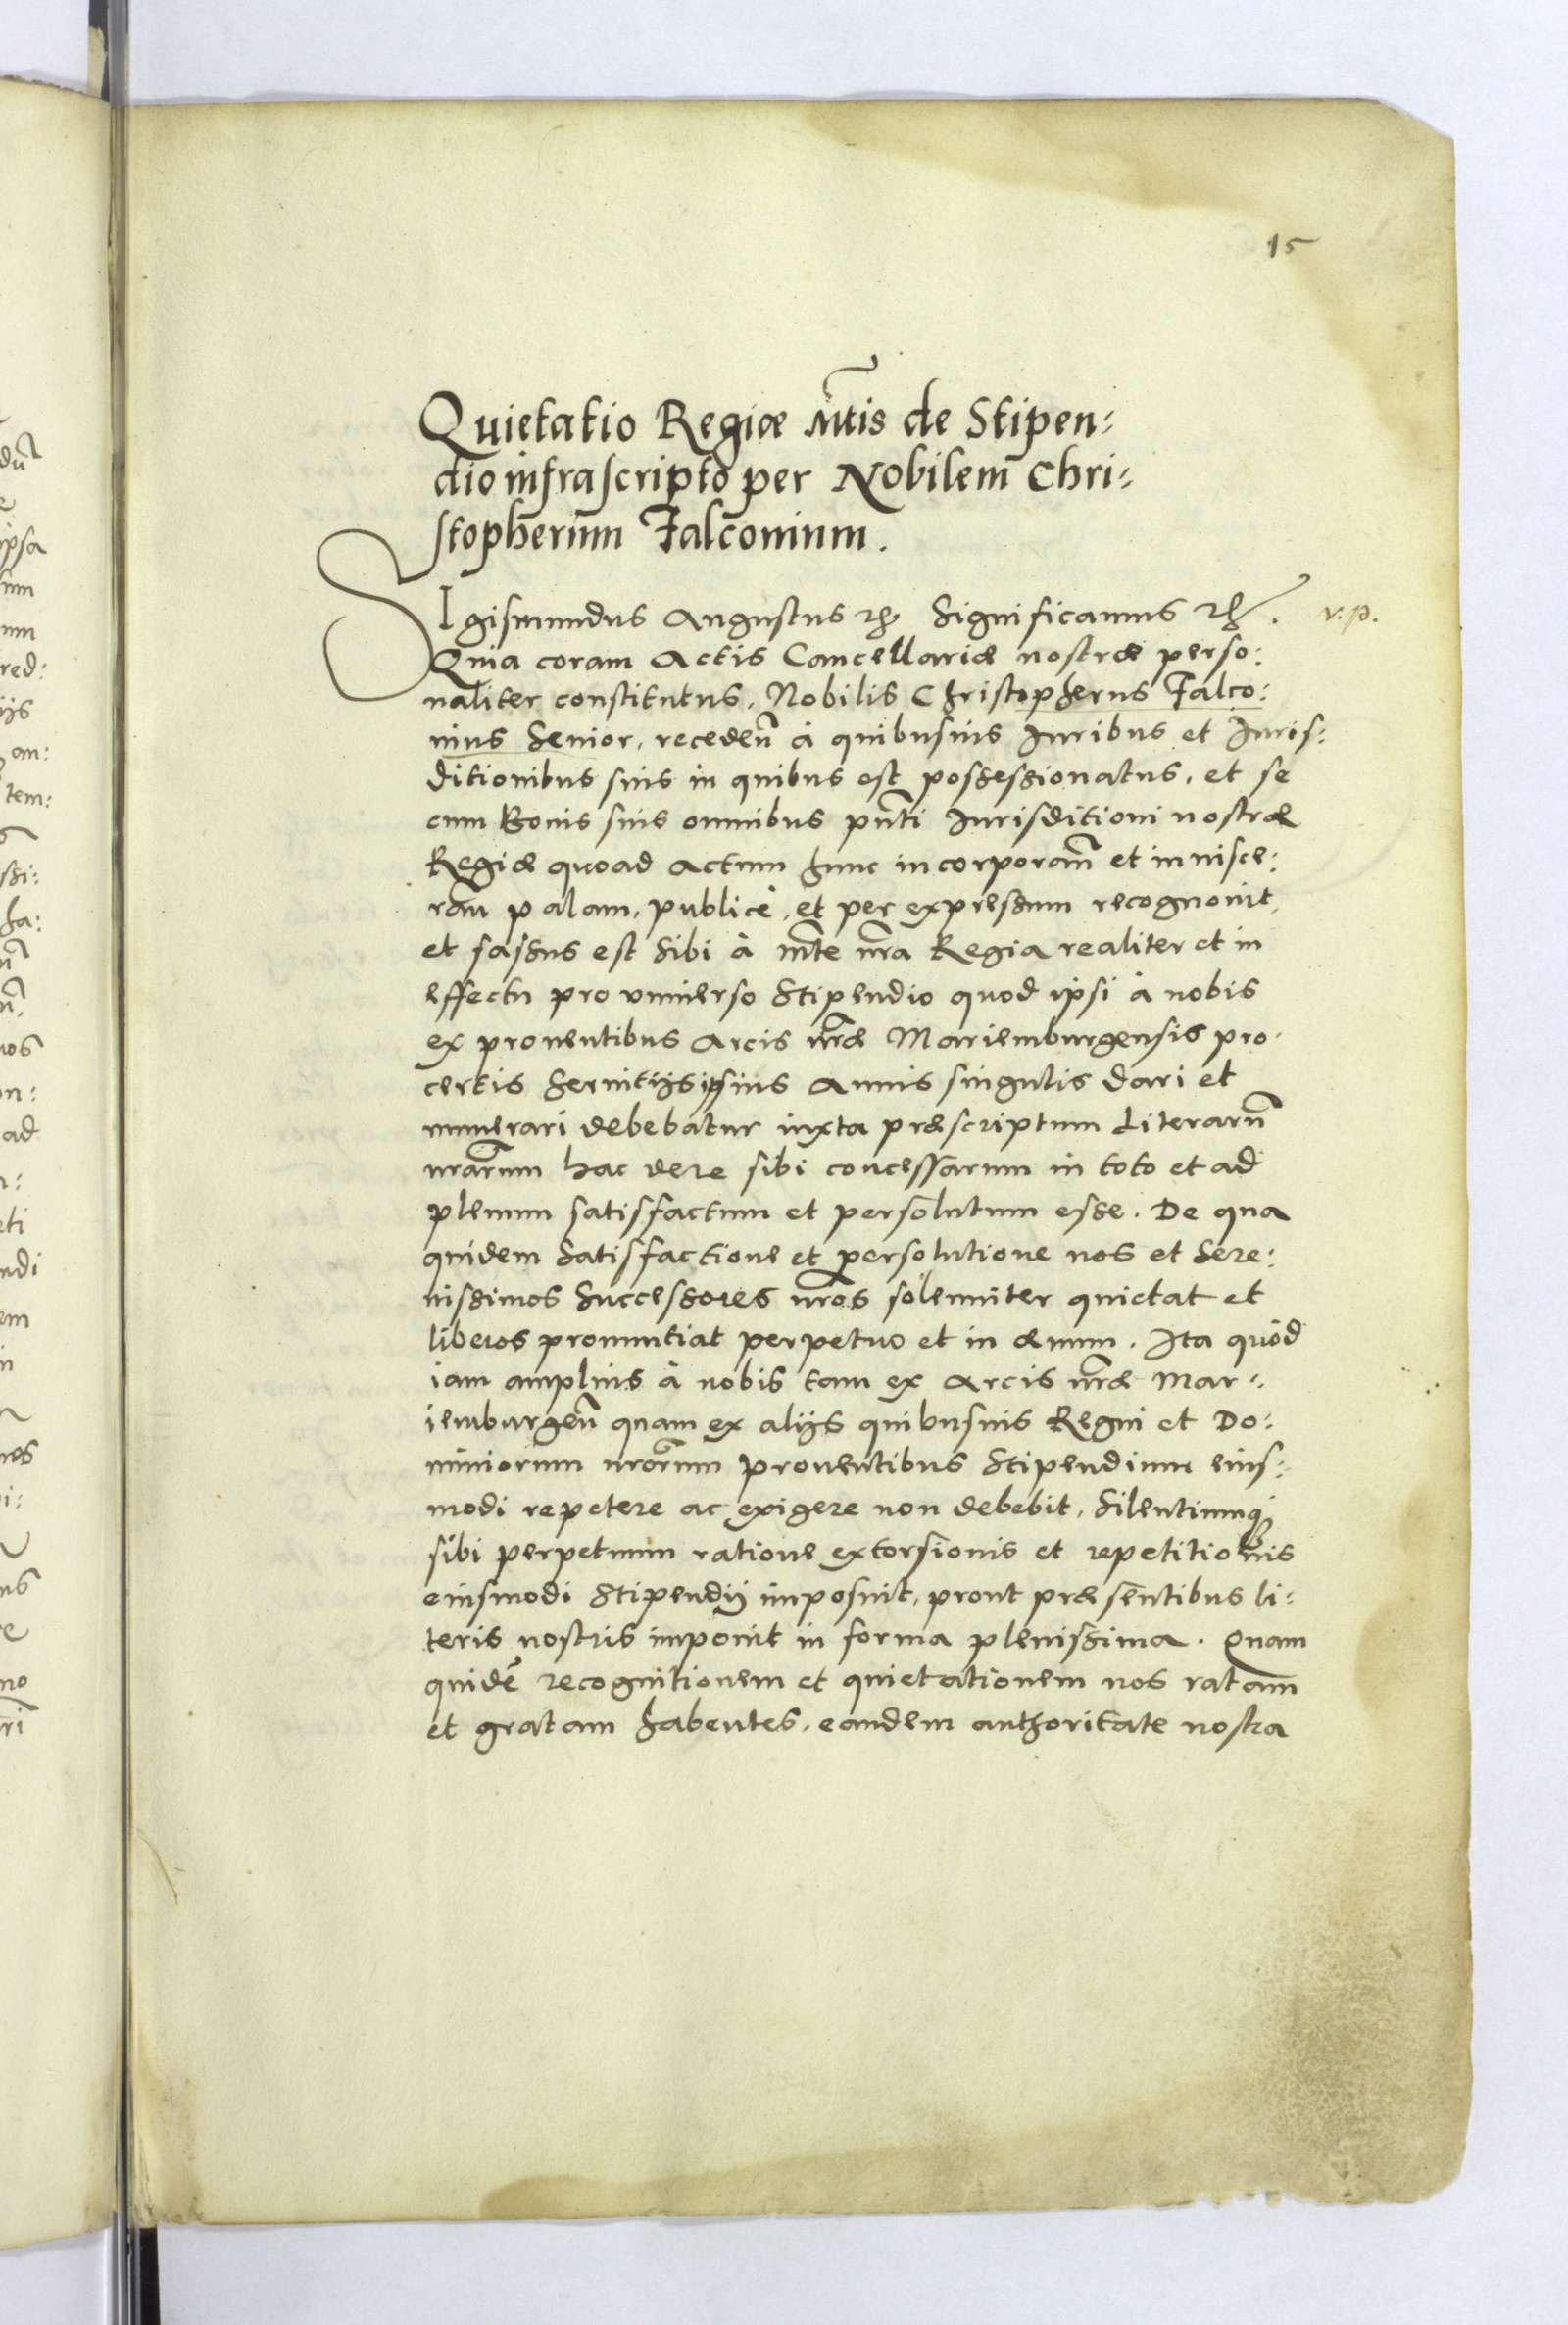 15
Quietatio Regiæ Mtis de Stipen:
dio infrascripto per Nobilem Chri:
stopherum Falconium.
SIgismundus Augustus etc. Significamus etc. v. p.
Quia coram Actis Cancellariæ nostræ perso:
naliter constitutus, Nobilis Christopherus Falco:
nius Senior, recedeñ à quibusuis Iuribus et Iuris:
ditionibus suis in quibus est possessionatus, et se
cum Bonis suis omnibus pñti Iurisditioni nostræ
Regiæ quoad Actum hunc incorporam̃ et inuisce:
ram̃ palam, publicè, et per expressum recognouit,
et fassus est Sibi à Mte nra Regia realiter et in
effectu pro vniuerso Stipendio quod ipsi à nobis
ex prouentibus Arcis nræ Mariemburgensis pro
certis Seruitijs ipsius Annis singulis dari et
numerari debebatur iuxta præscriptum Literarũ
nrarum hac de re sibi concessarum in toto et ad
plenum satisfactum et persolutum esse. De qua
quidem Satisfactione et persolutione nos et Sere:
nissimos Successores nros solenniter quietat et
liberos pronuntiat perpetuo et in æuum. Ita quòd
iam amplius à nobis tam ex Arcis nræ Mar:
iemburgeñ quam ex alijs quibusuis Regni et Do:
miniorum nrorum prouentibus Stipendium eius:
modi repetere ac exigere non debebit, Silentiumq;
sibi perpetuum ratione extorsionis et repetitionis
eiusmodi Stipendij imposuit, prout præsentibus li:
teris nostris imponit in forma plenissima. Quam
quidẽ recognitionem et quietationem nos ratam
et gratam habentes, eandem authoritate nostra
dũ
ipsa
red:
ijs
an:
tem:
ssi:
fa:
nos
on:
ad
eti
ndi
em
in
nes
i:
ns
e
no
ri